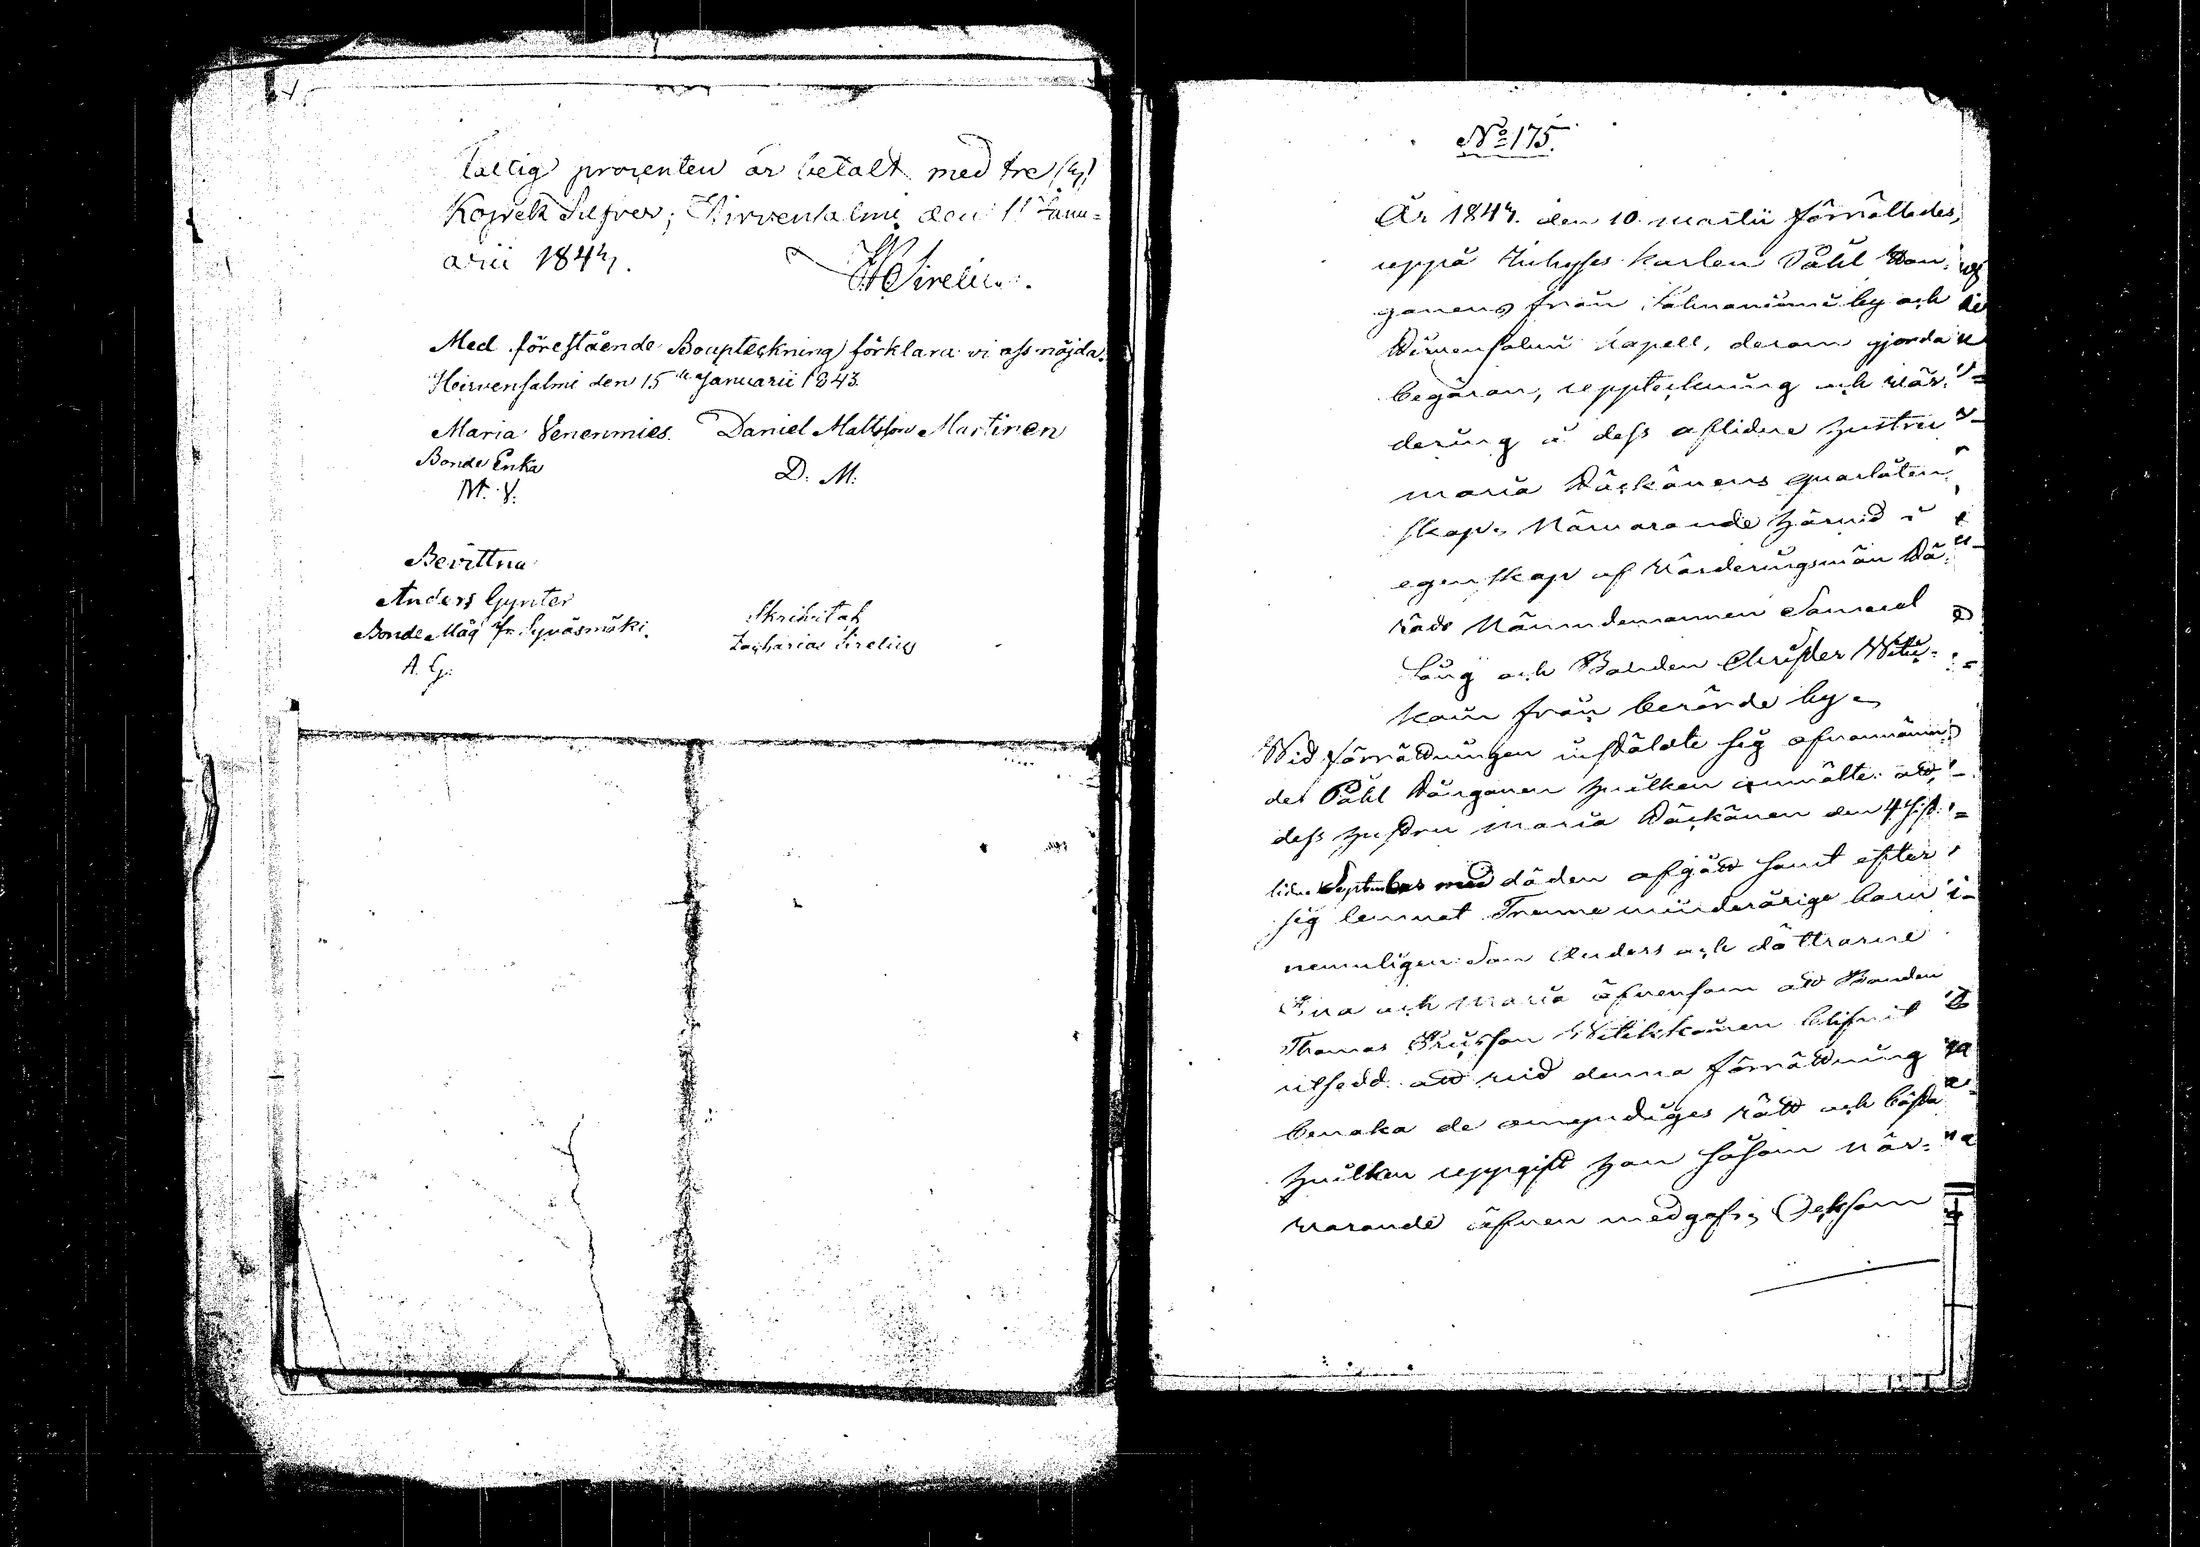 Fattig procenten är betalt med tre (3)
Kopek Silfver; Hirvensalmi den 15 Janu=
arii 1843.
Sirelius.
Med förestående Bouptekning förklara vi oss nöjda.
Heirvensalmi den 15 Januarii 1843.
Maria Venenmies. Daniel Mattsson Martinen
Bonde Enka
M. V. D. M.
Bevittna
Anders Gynter
Bonde Måg fr. Syväsmäki. Skrivit af
Zacharias Sirelius
A. G.
No 175.
År 1843. den 10 Martii förrättades,
uppå Inhyses karlen Påhl
från by och
Hirvensalmi Kapell, derom gjorda
begäran, uppteckning och vär=
dering å dess aflidne hustru
Maria qvarlåten
skap. Närvarande härvid i
egenskap af Värderingsmän
Rådo Nämndemannen Samuel
Läng och Bonden Christer Witi=
kain från berörde by.
Wid förrättningen instälde sig ofvannämn
de Påhl hvilken anmälte att
dess hustru Maria den 4 sist
lidne September med döden afgått samt efter
sig lemnat Trenne minderårige barn
nemnligen: Son Anders och döttrarne
och Maria äfvensom att Bonden
Thomas Witikkainen blifvit
utsedd att vid denna förrättning
bevaka de omyndiges rätt och bästa
hvilken uppgift han såsom när=
varande äfven medgaf; Och som